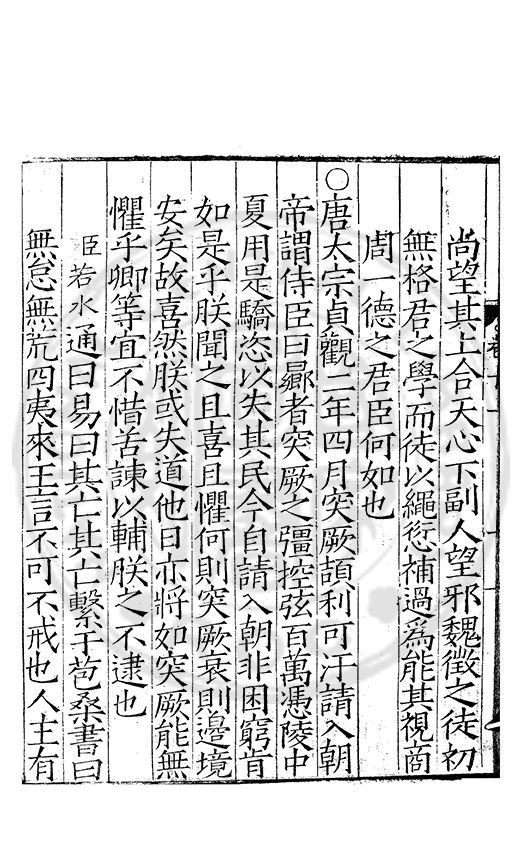 尚望其上合天心下副人望邪魏徵之徒初
無格君之學而徒以繩愆補過爲能其視商
周一德之君臣何如也
○唐太宗貞觀二年四月突厥頡利可汗請入朝
帝謂侍臣曰曏者突厥之彊控弦百萬憑陵中
夏用是驕恣以失其民今自請入朝非困窮肯
如是乎朕聞之且喜且懼何則突厥衰則邊境
安矣故喜然朕或失道他日亦將如突厥能無
懼乎卿等宜不惜苦諫以輔朕之不逮也
臣若水通曰易曰其亡其亡繫于苞桑書曰
無怠無荒四夷來王言不可不戒也人主有